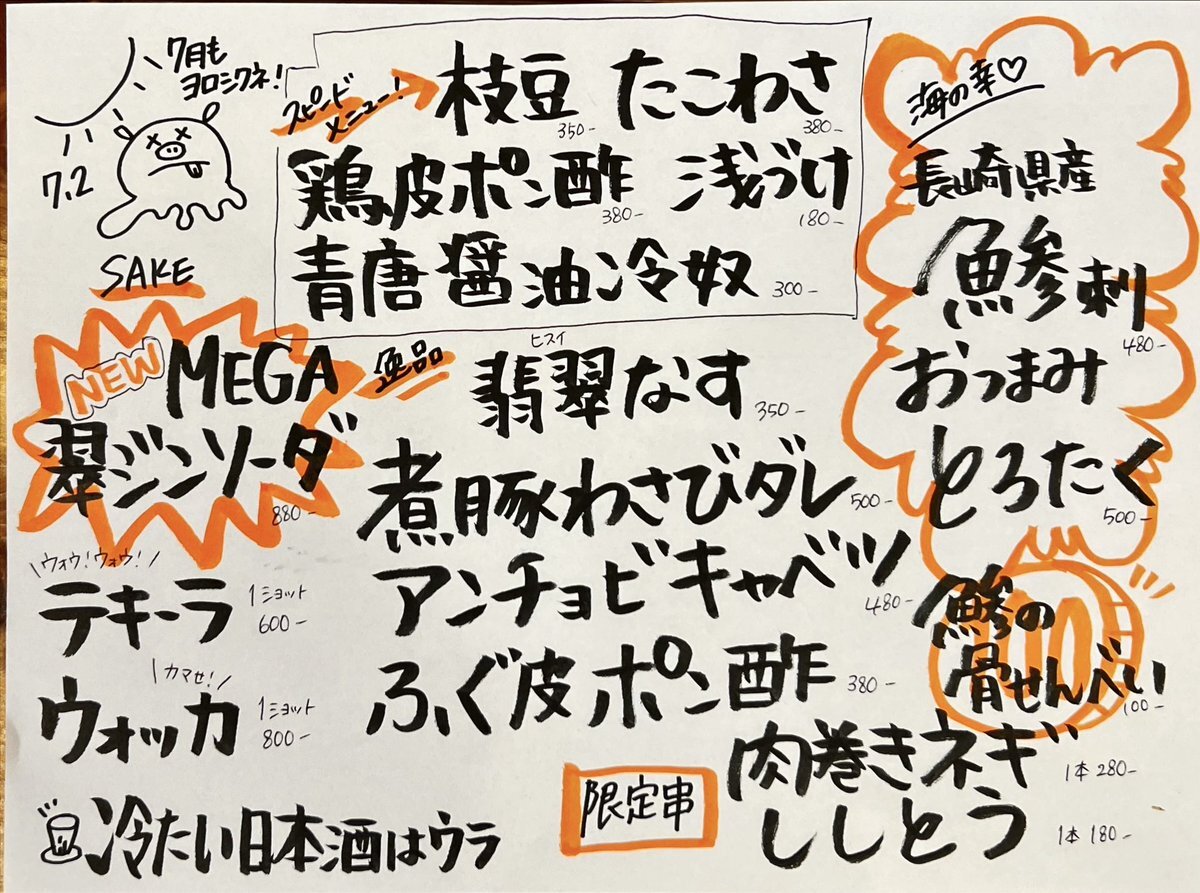 7月も
ヨロシクネ!
7.2
スピードメニュー!
枝豆 350-
たこわさ 380-
鶏皮ポン酢 380-
浅づけ 180-
青唐醤油冷奴 300-
海の幸♡
長崎県産
鯵刺 480-
おつまみ
とろたく 500-
鯵の
骨せんべい 100-
SAKE
NEW MEGA
翠ジンソーダ 880-
\ウォウ!ウォウ!/
テキーラ 1ショット 600-
\カマせ!/
ウォッカ 1ショット 800-
冷たい日本酒はウラ
逸品
ヒスイ
翡翠なす 350-
煮豚わさびダレ 500-
アンチョビキャベツ 480-
ふぐ皮ポン酢 380-
限定串
肉巻きネギ 1本 280-
ししとう 1本 180-